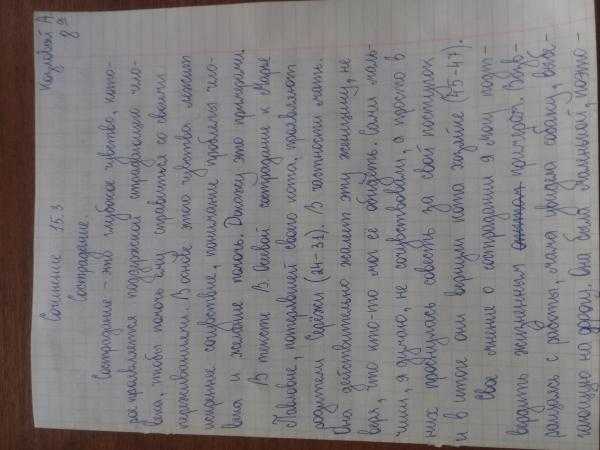 Козловой А.
8 а
Сочинение 15.3
Сострадание.
Сострадание – это глубокое чувство, кото-
рое проявляется поддержкой страдающего чело-
века, чтобы помочь ему справиться со своими
переживаниями. В основе этого чувства лежит
искреннее сочувствие, понимание проблемы чело-
века и желание помочь. Докажу это примерами.
В тексте В. Осеевой сострадание к Марье
Павловне, потерявшей своего кота, проявляют
родители Серёжи (24-31). В частности мать.
Она действительно жалеет эту женщину, не
веря, что кто-то мог её обидеть. Сами маль-
чики, я думаю, не сочувствовали, а просто в
них проснулась совесть за свой поступок
и в итоге они вернули кота хозяйке (45-47).
Своё мнение о сострадании я могу подт-
вердить жизненным примером. Возв-
ращаясь с работы, мама увидела собаку, выбе-
гающую на дорогу. Она была маленькой, поэто-